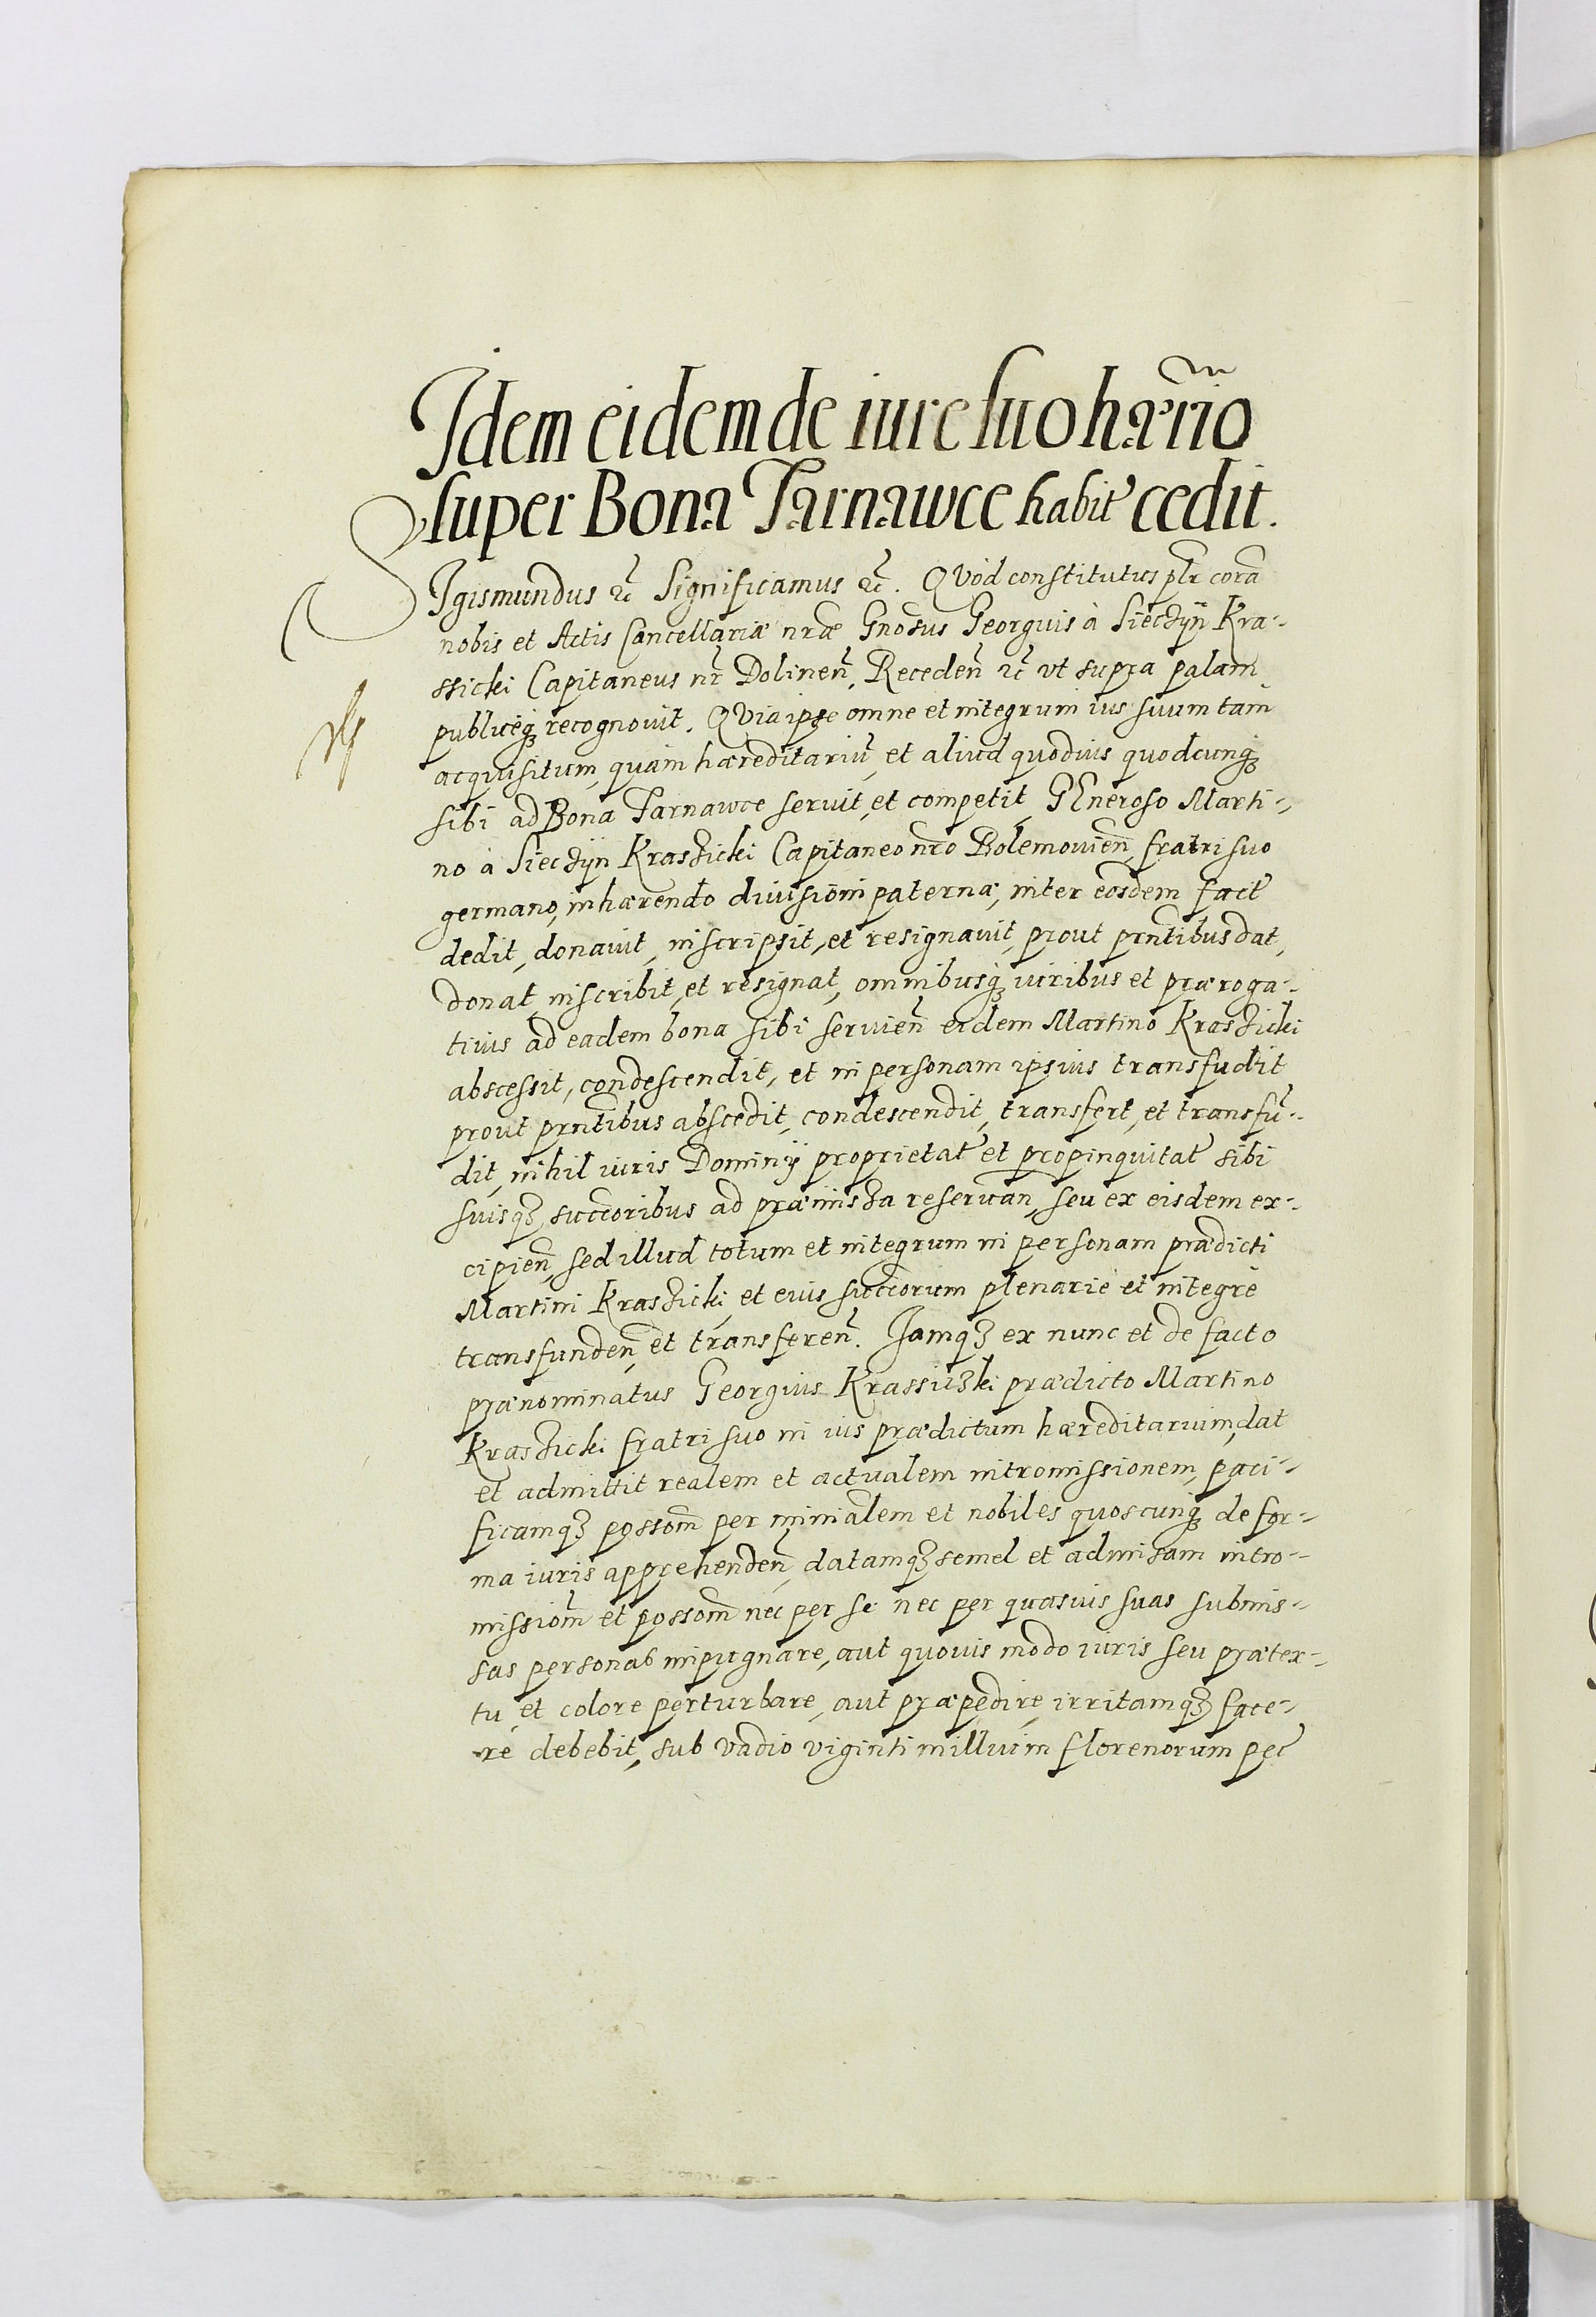 Idem eidem de iure suo hærrio
super Bona Tarnawce habit cedit.
SIgismundus ꝛc̃ Significamus ꝛc̃. QVod constitutus pl̃r corã
nobis et Actis Cancellariæ nr̃æ Gnõsus Georgius à Sieczÿn Kra-
ssicki Capitaneus nr̃ Dolinen̄, Receden̄ ꝛc̃ vt supra palam
publiceq3 recognouit. QVia ipse omne et integrum ius suum tam
acquisitum, quam hæreditariũ, et aliud quoduis quodcunq3
sibi ad Bona Tarnawce seruit, et competit, GEneroso Marti-
no à Sieczÿn Kraszicki Capitaneo nr̃o Bolemouien̄, fratri suo
germano, inhærendo diuisioni paternæ, inter eosdem fact
dedit, donauit, inscripsit, et resignauit, prout prñtibus dat,
donat, inscribit, et resignat, omnibusq3 iuribus et præroga-
tiuis ad eadem bona sibi seruien̄ eidem Martino Kraszicki
abscessit, condescendit, et in personam ipsius transfudit
prout prñtibus abscedit, condescendit, transfert, et transfũ-
dit, nihil iuris Dominÿ proprietat et propinquitat sibi
suisq3, succõribus ad præmissa reseruan̄, seu ex eisdem ex-
cipien̄, sed illud totum et integrum in personam prædicti
Martini Kraszicki, et eius succõrum plenariè et integrè
transfunden̄, et transferen̄. Iamq3 ex nunc et de facto
prænominatus Georgius Krassiczki prædicto Martino
Kraszicki fratri suo in ius prædictum hæreditarium, dat
et admittit realem et actualem intromissionem, paci-
ficamq3 possom̄ per minialem et nobiles quoscunq3 de for-
ma iuris apprehenden̄, datamq3 semel et admissam intro-
missiom̄ et possom̄ nec per se nec per quasuis suas submis-
sas personas impugnare, aut quouis modo iuris seu prætex-
tu, et colore perturbare, aut præpedire, irritamq3 face-
re debebit, sub vadio viginti millium florenorum pec